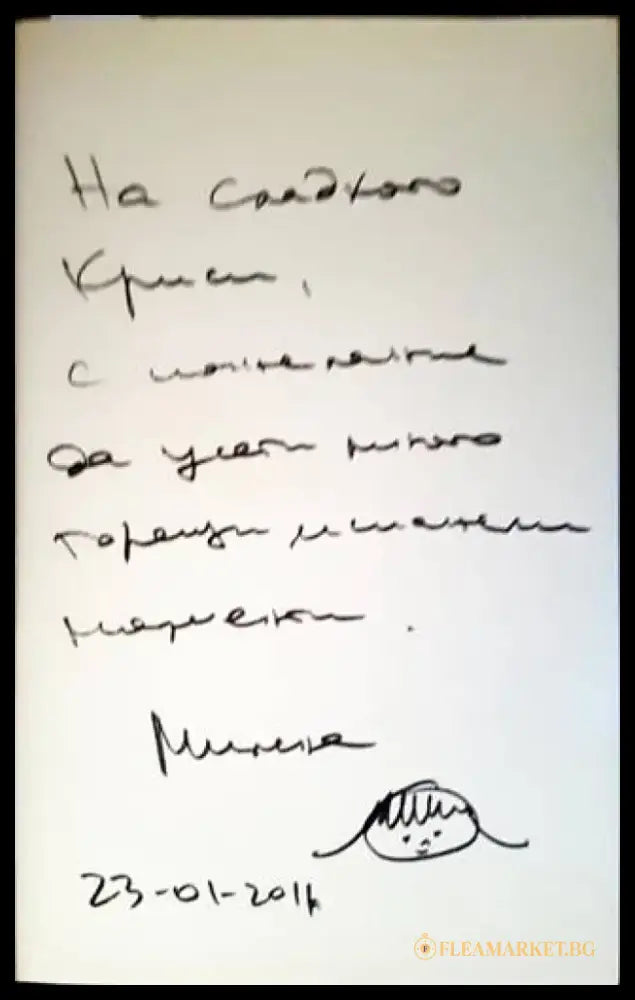 На сладкого
Криси,
с пожелание
да усети много
горещи и
Милена
23-01-2011
FLEAMARKET.BG